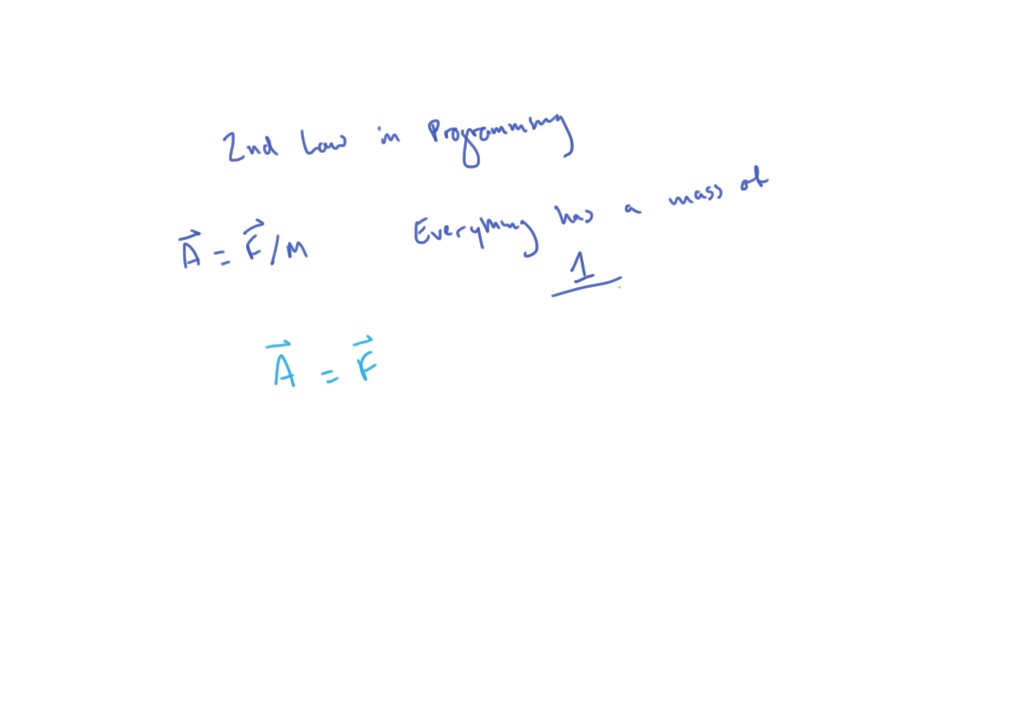 2nd Law in Programming
A⃗ = F⃗/M
Everything has a mass of
1
A⃗ = F⃗